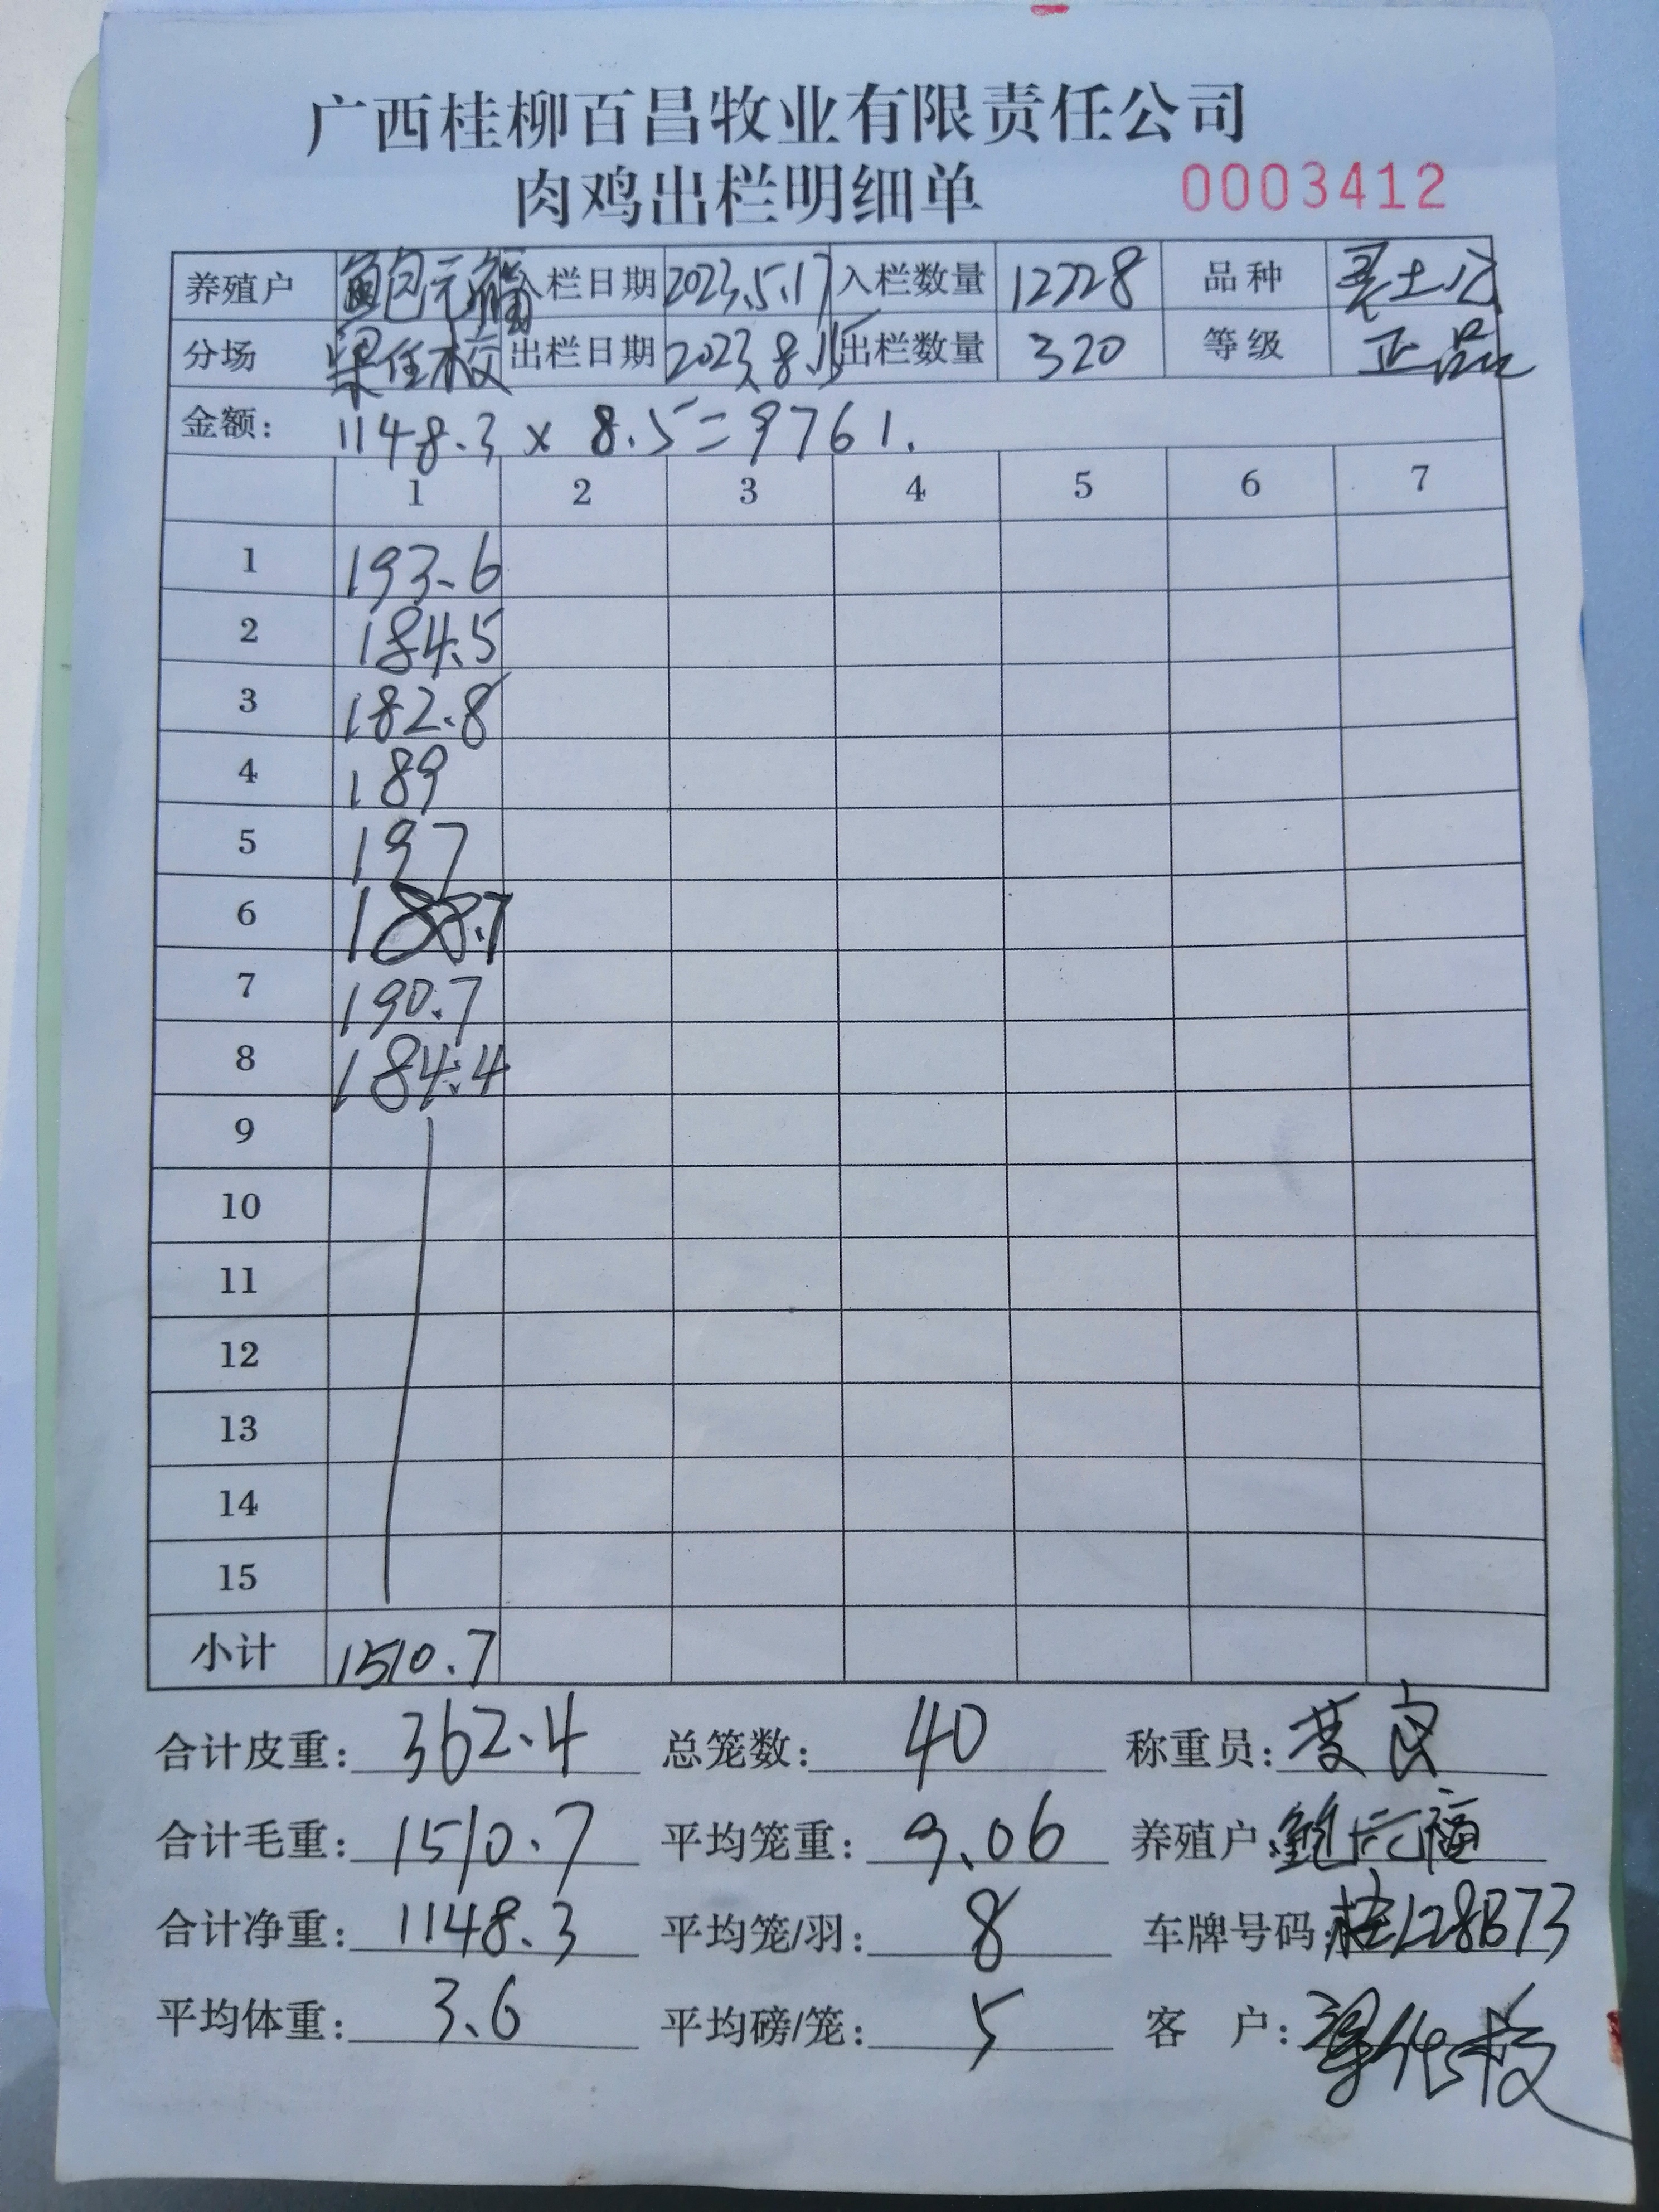 广西桂柳百昌牧业有限责任公司
肉鸡出栏明细单 0003412
养殖户 鲍元福 入栏日期 2023.5.17 入栏数量 12728 品种 土公
分场 梁任校 出栏日期 2023.8.15 出栏数量 320 等级 正品
金额: 1148.3 x 8.5=9761.
1 2 3 4 5 6 7
1 193.6
2 184.5
3 182.8
4 189
5 197
6 188.7
7 190.7
8 184.4
9
10
11
12
13
14
15
小计 1510.7
合计皮重: 362.4 总笼数: 40 称重员:
合计毛重: 1510.7 平均笼重: 9.06 养殖户: 鲍元福
合计净重: 1148.3 平均笼/羽: 8 车牌号码: 桂L28B73
平均体重: 3.6 平均磅/笼: 5 客 户: